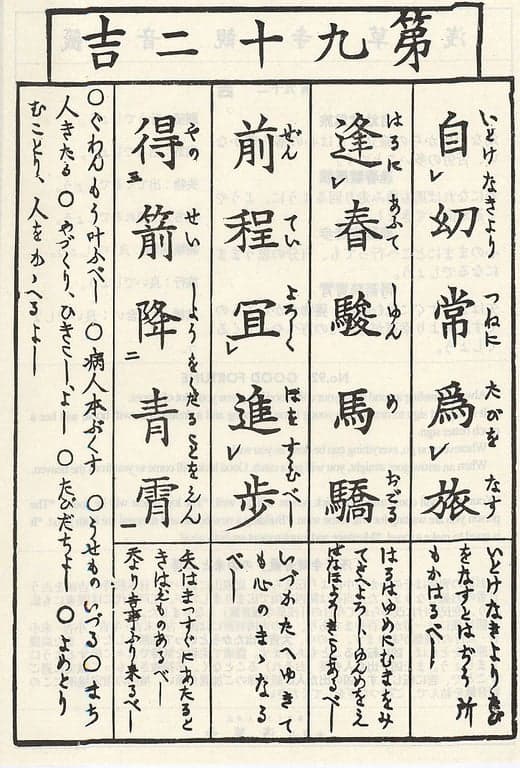 第九十二吉
いとけなきより つねに たびを なす
自レ幼常爲レ旅
はるに あふて しゆん め おごる
逢レ春駿馬驕
ぜん てい よろしく ほをすゝむべし
前程冝レ進レ歩
やの せい しようをくだることをえん
得三箭降二青霄
いとけなきよりたび
をなすとは 所
もかはるべし
はるはゆめにむまをみ
てきよろしじゆんめをえ
ば きちあるべし
いづかたへゆきて
も心のまゝなる
べし
矢はまつすぐにあたると
きはえものあるべし
天より吉事ふり来るべし
○ぐわんもう叶ふべし ○病人本ぶくす ○うせものいづる○まち
人きたる ○やづくり、ひきこし、よし ○たびだちよし ○よめとり
むことり、人をかゝへるよし